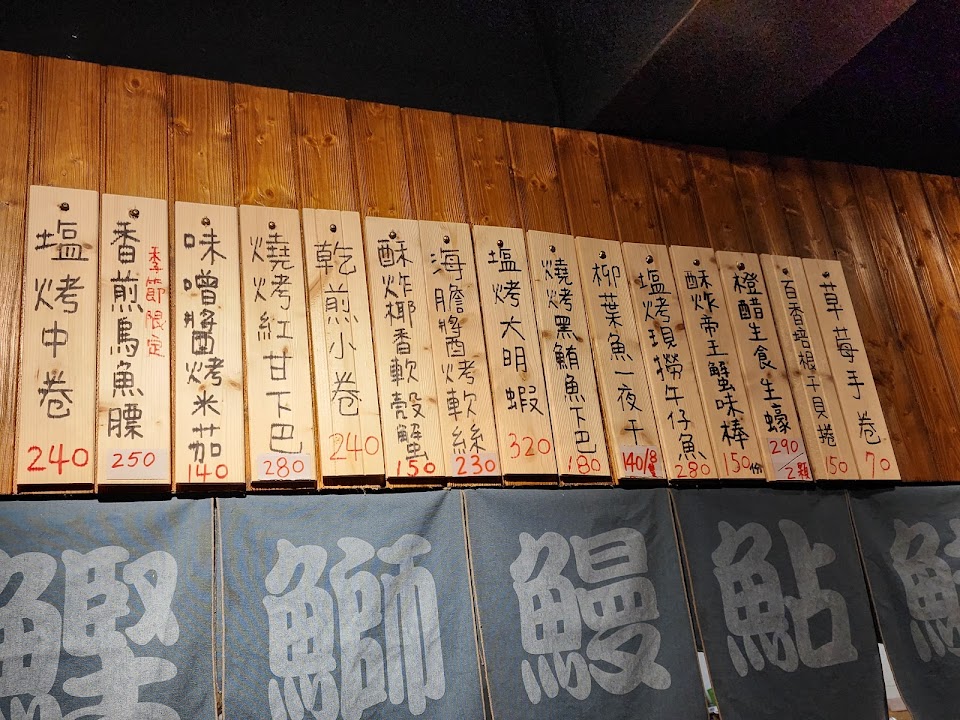 塩烤中卷
240
香煎馬魚膘
季節限定
250
味噌醬烤米茄
140
燒烤紅甘下巴
280
乾煎小卷
240
酥炸椰香軟殼蟹
150
海膽將酉烤軟絲
230
塩烤大明蝦
320
燒烤黑鮪魚下巴
180
柳葉魚一夜干
140/8隻
塩烤現撈午仔魚
280
酥炸帝王蟹味棒
150份
橙醋生食生蠔
290/2顆
百香培根干貝捲
150
草莓手卷
70
鰹
鰤
鰻
鮎